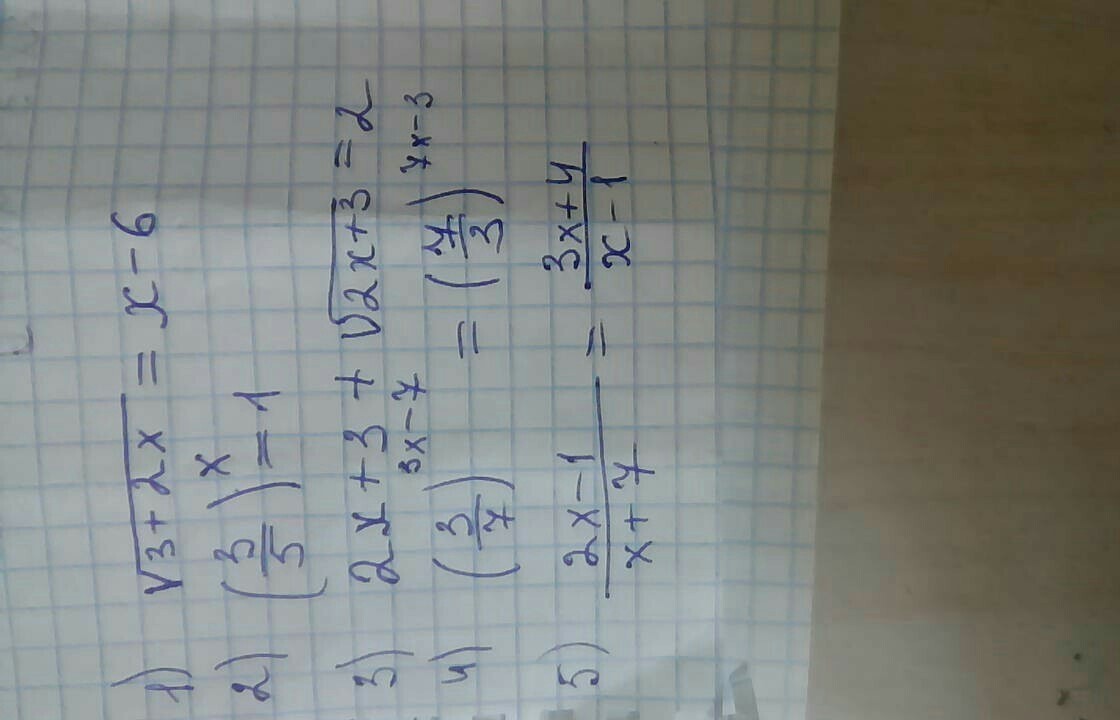 1) √(3+2x) = x−6
2) (3/5)^x = 1
3) 2x+3+√(2x+3) = 2
4) (3/7)^(3x−7) = (7/3)^(7x−3)
5) (2x−1)/(x+7) = (3x+4)/(x−1)